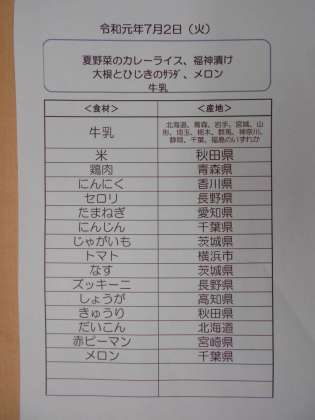 令和元年7月2日（火）
夏野菜のカレーライス、福神漬け
大根とひじきのｻﾗﾀﾞ、メロン
牛乳
＜食材＞ ＜産地＞
牛乳 北海道、青森、岩手、宮城、山形、埼玉、栃木、群馬、神奈川、静岡、千葉、福島のいずれか
米 秋田県
鶏肉 青森県
にんにく 香川県
セロリ 長野県
たまねぎ 愛知県
にんじん 千葉県
じゃがいも 茨城県
トマト 横浜市
なす 茨城県
ズッキーニ 長野県
しょうが 高知県
きゅうり 秋田県
だいこん 北海道
赤ピーマン 宮崎県
メロン 千葉県